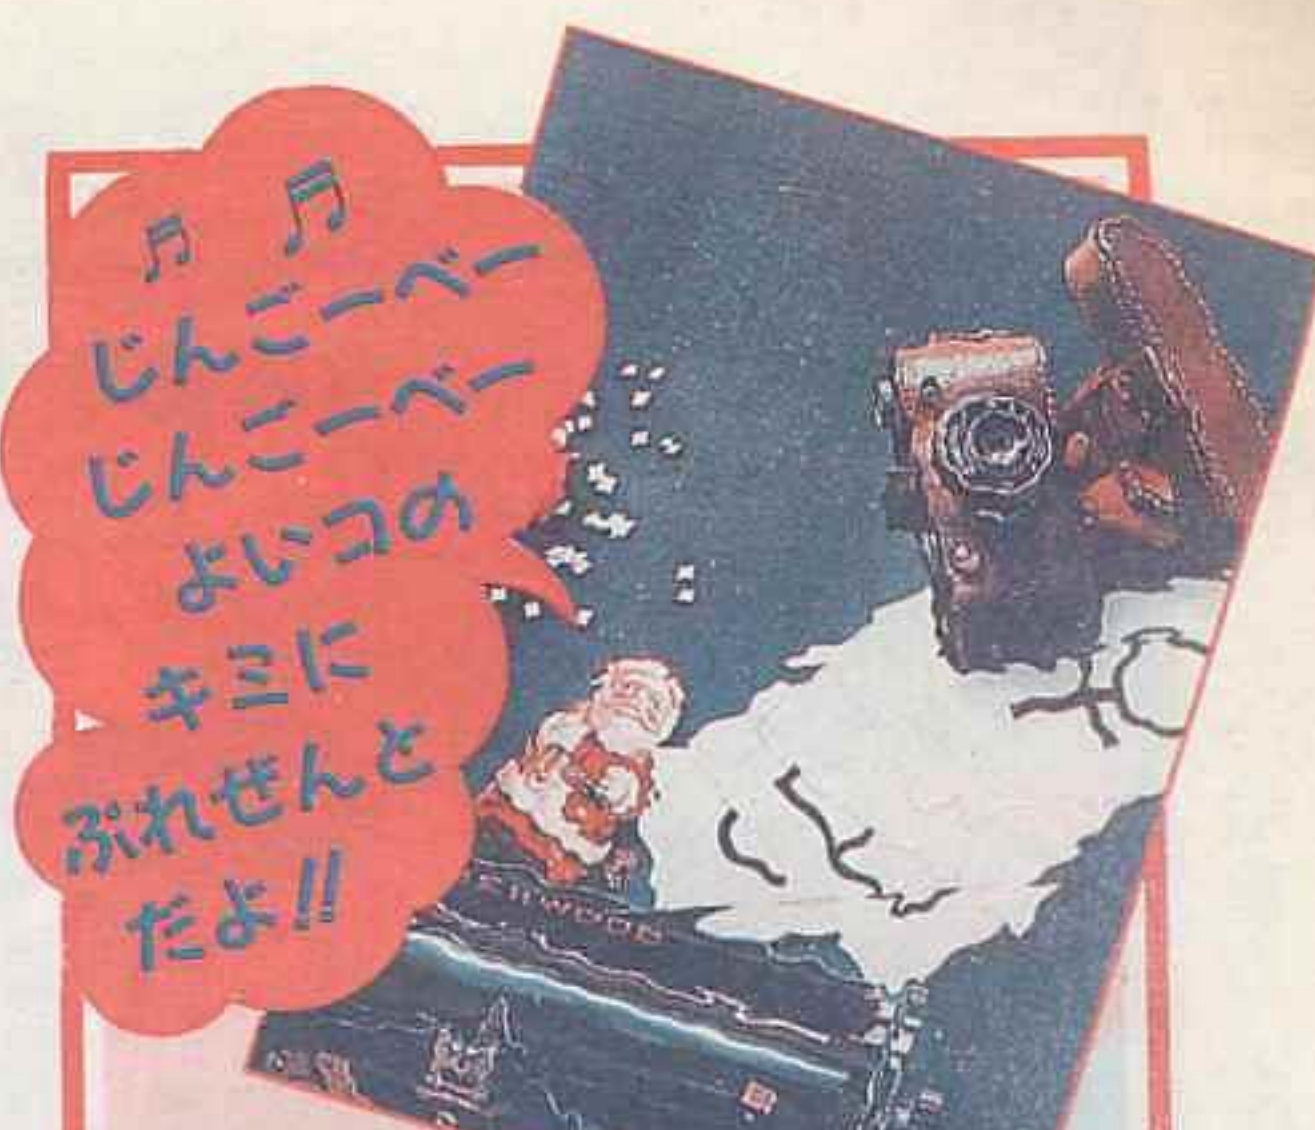 ♬ ♬
じんごーべー
じんごーべー
よいコの
キミに
ぷれぜんと
だよ!!